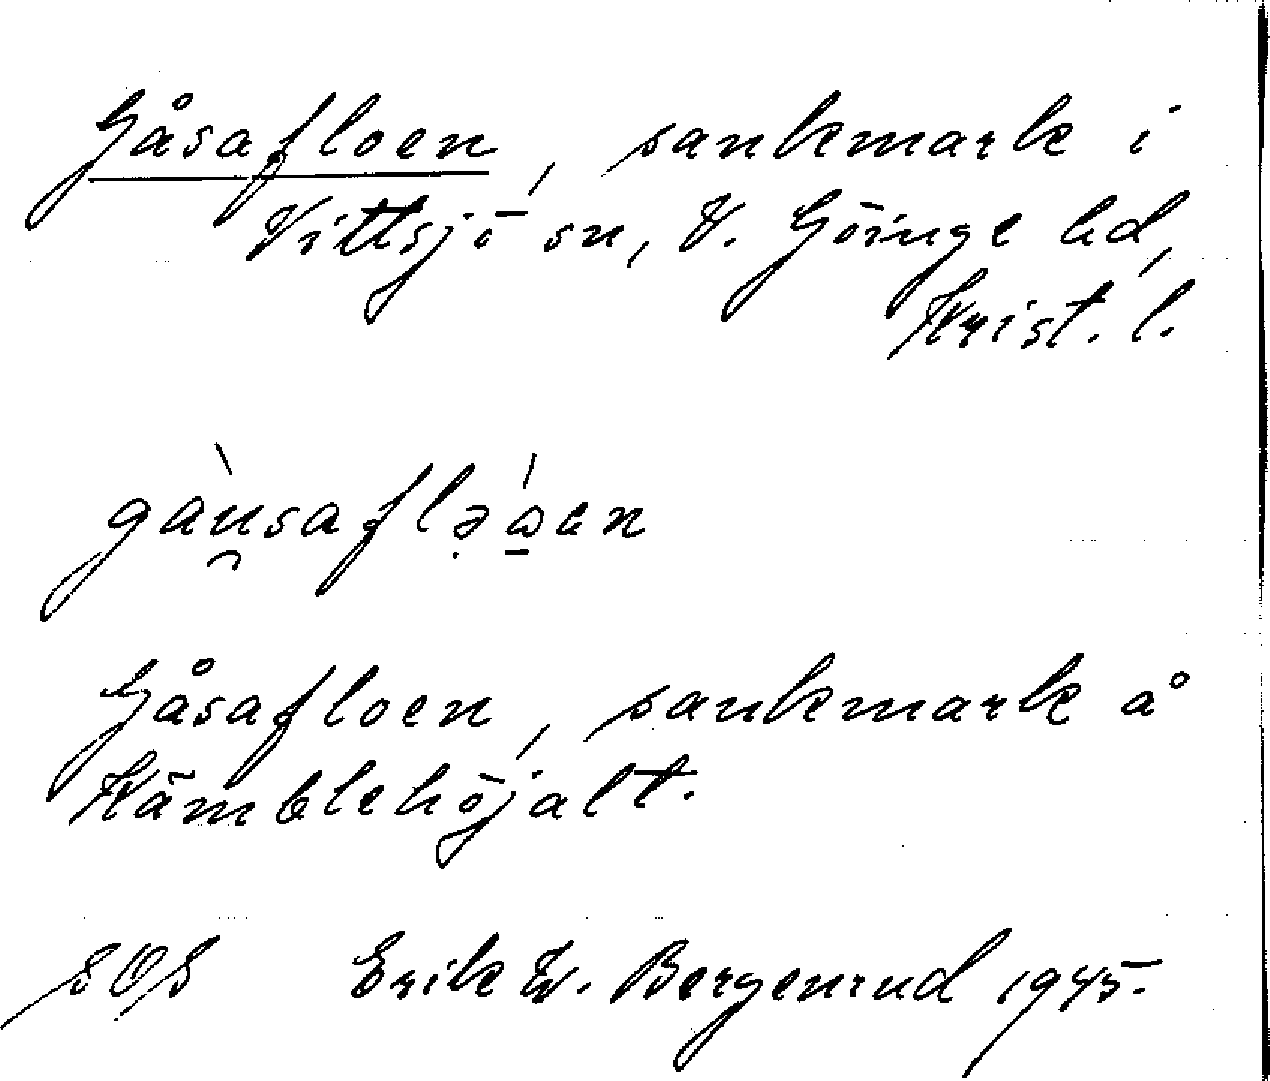 Gåsafloen, sankmark i
Vittsjö sn, V. Göinge hd,
Krist. l.
gàu̯saflə̣́ω̱en
Gåsafloen, sankmark å
Kämblehöjalt.
SOS Erik W. Bergenrud 1945.